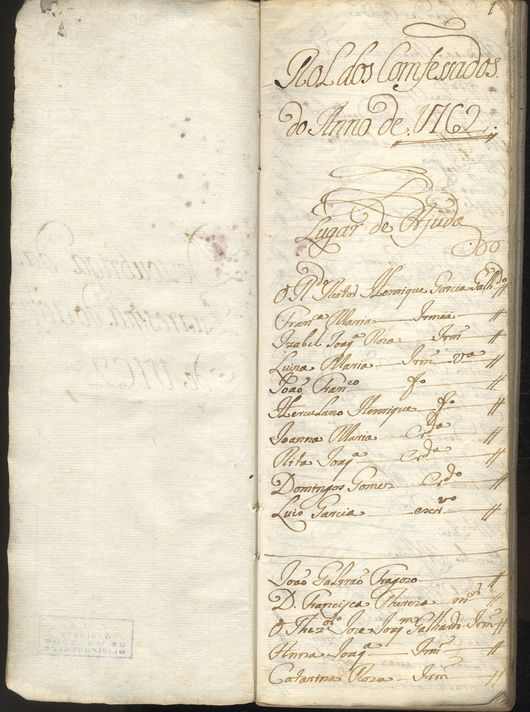 1
Rol dos Comfessados
do Anno de 1762.
Lugar de Ajuda
O Rdo Henrique Garcia Galhdo //
Franca Maria Irmaa //
Izabel Joaqa Roza Irm //
Luiza Maria Irm va //
João Franco fo //
Herculano Henrique fo //
Joanna Maria Crda //
Rita Joaqa Crda //
Domingos Gomes Crdo //
Luis Garcia escrvo //
João Galvão Fragozo //
D. Francisca Thereza mer //
O Thezro Joze Joaqm Galhardo Irm //
Anna Joaqa Irm //
Catarina Roza Irm //